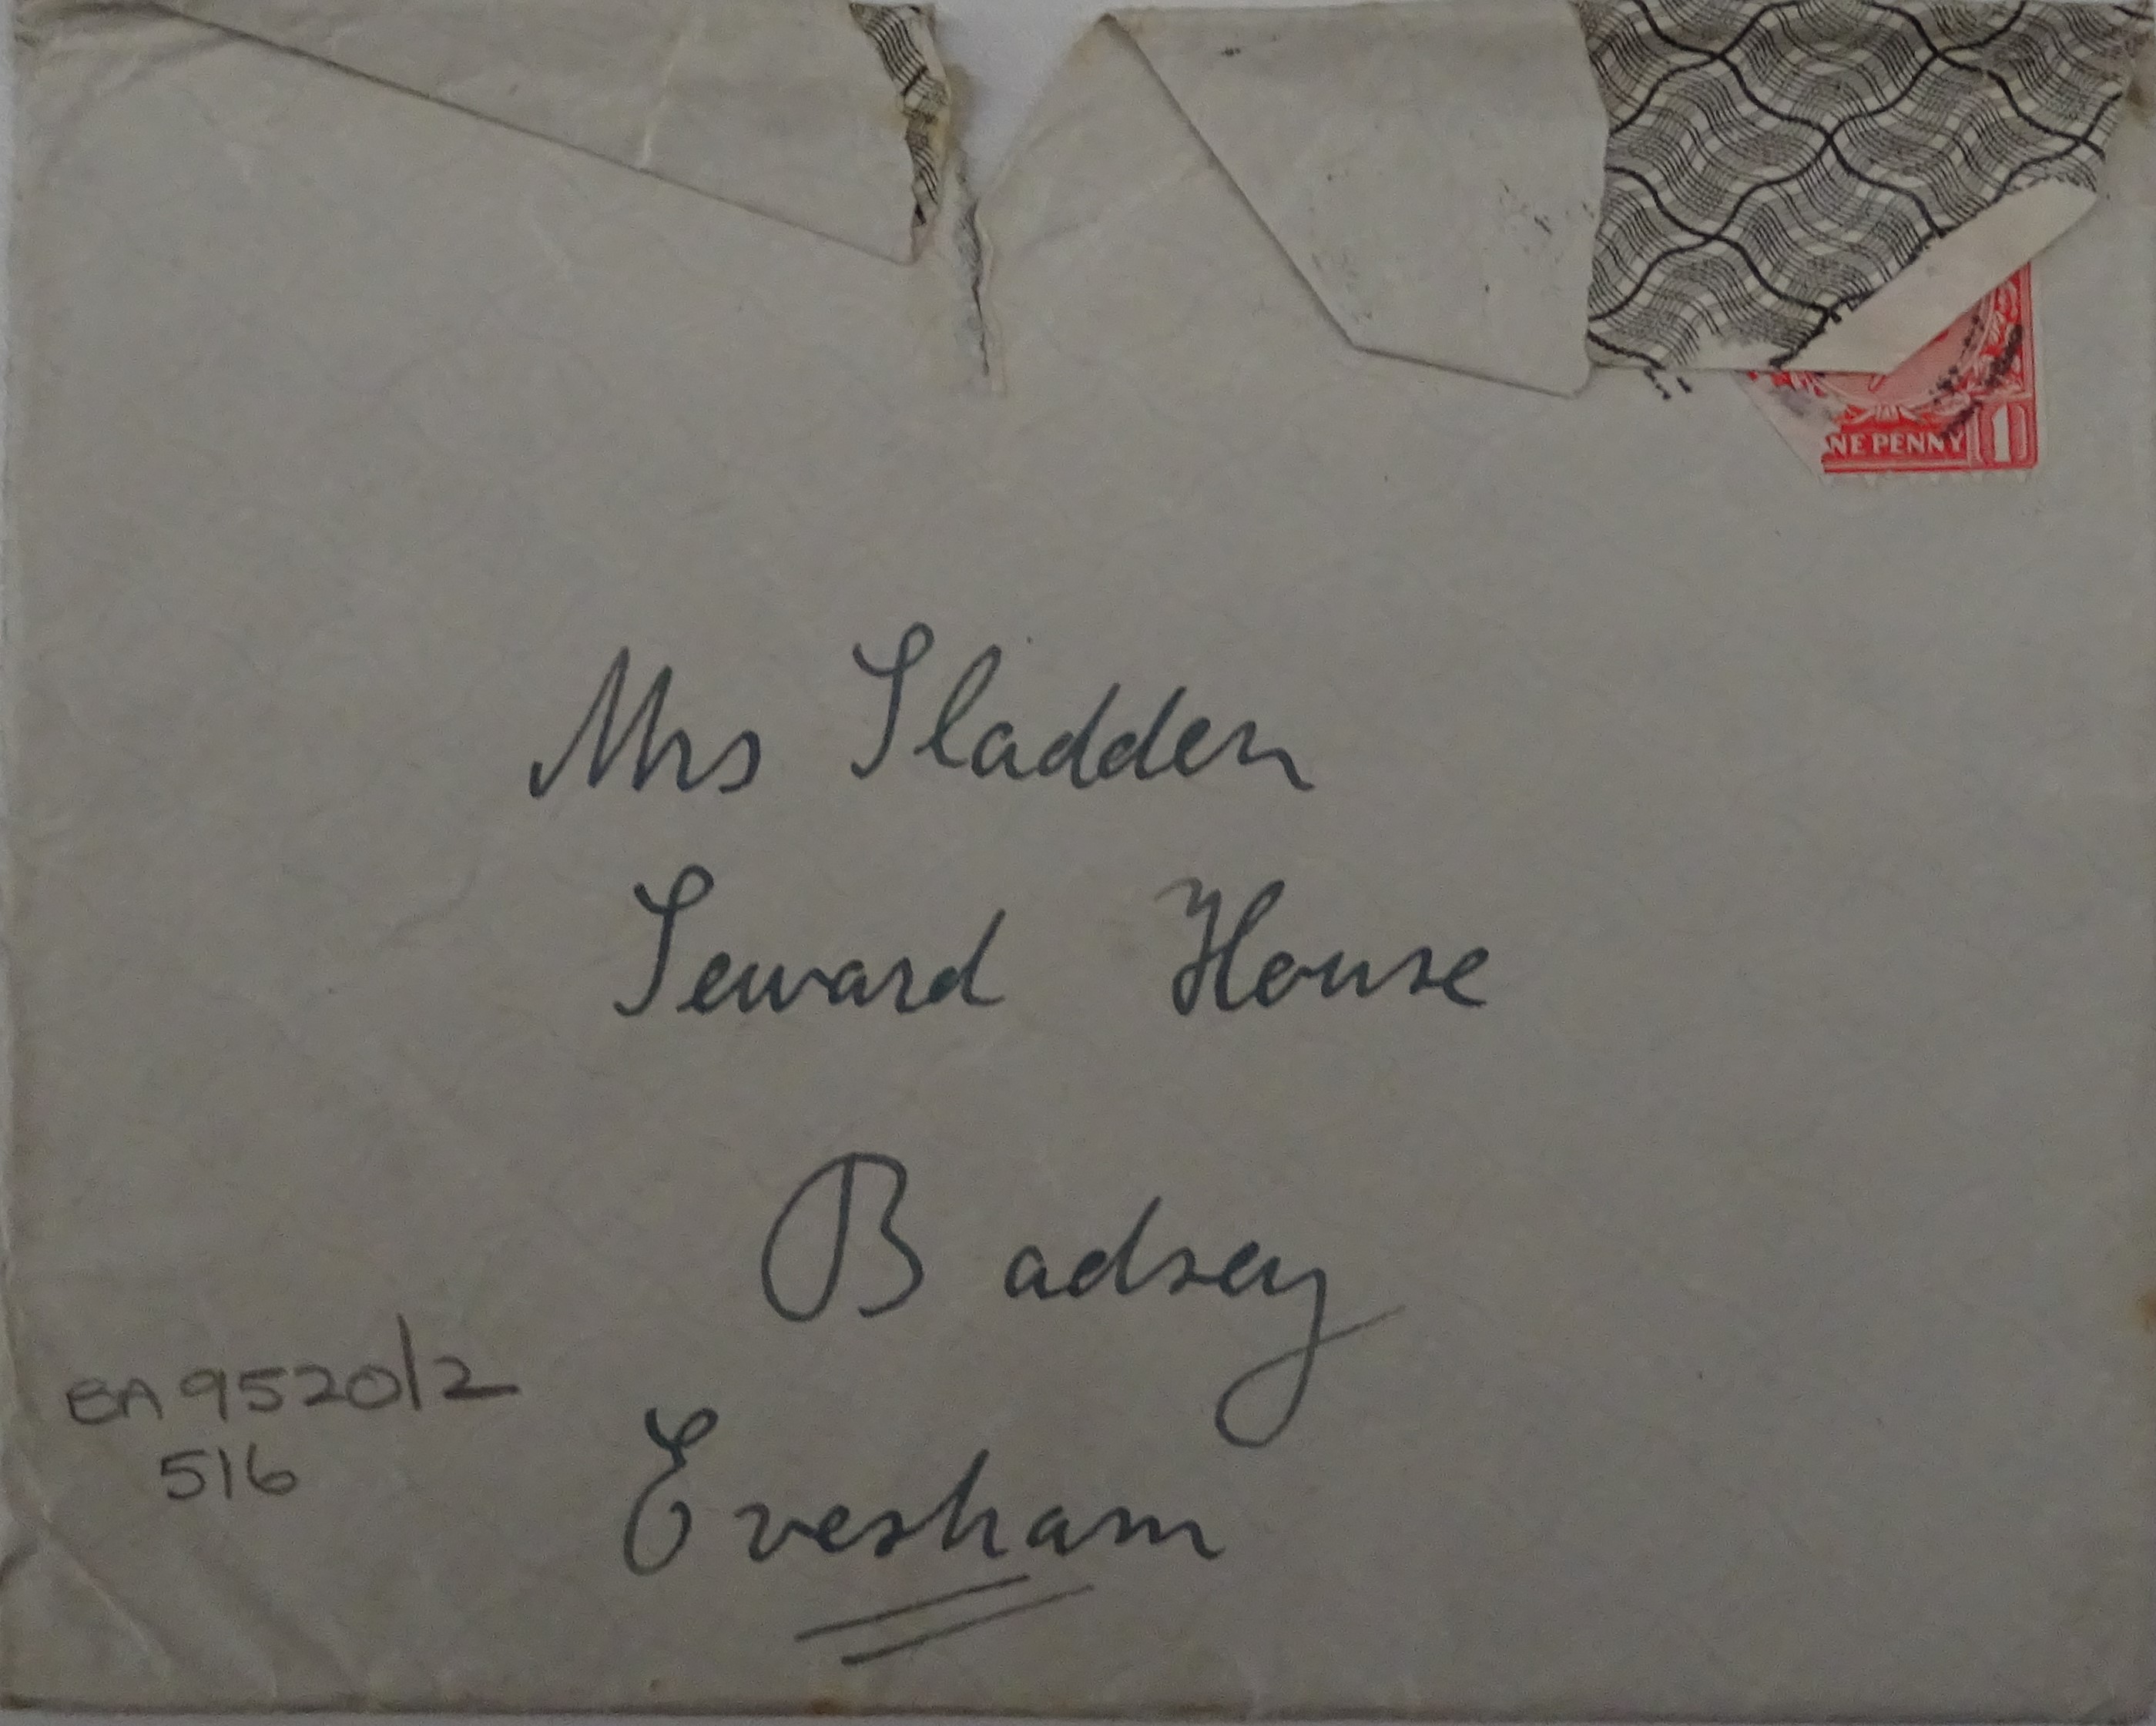 NE PENNY 1
Mrs Sladden
Seward House
Badsey
BA 9520/2
516
Evesham